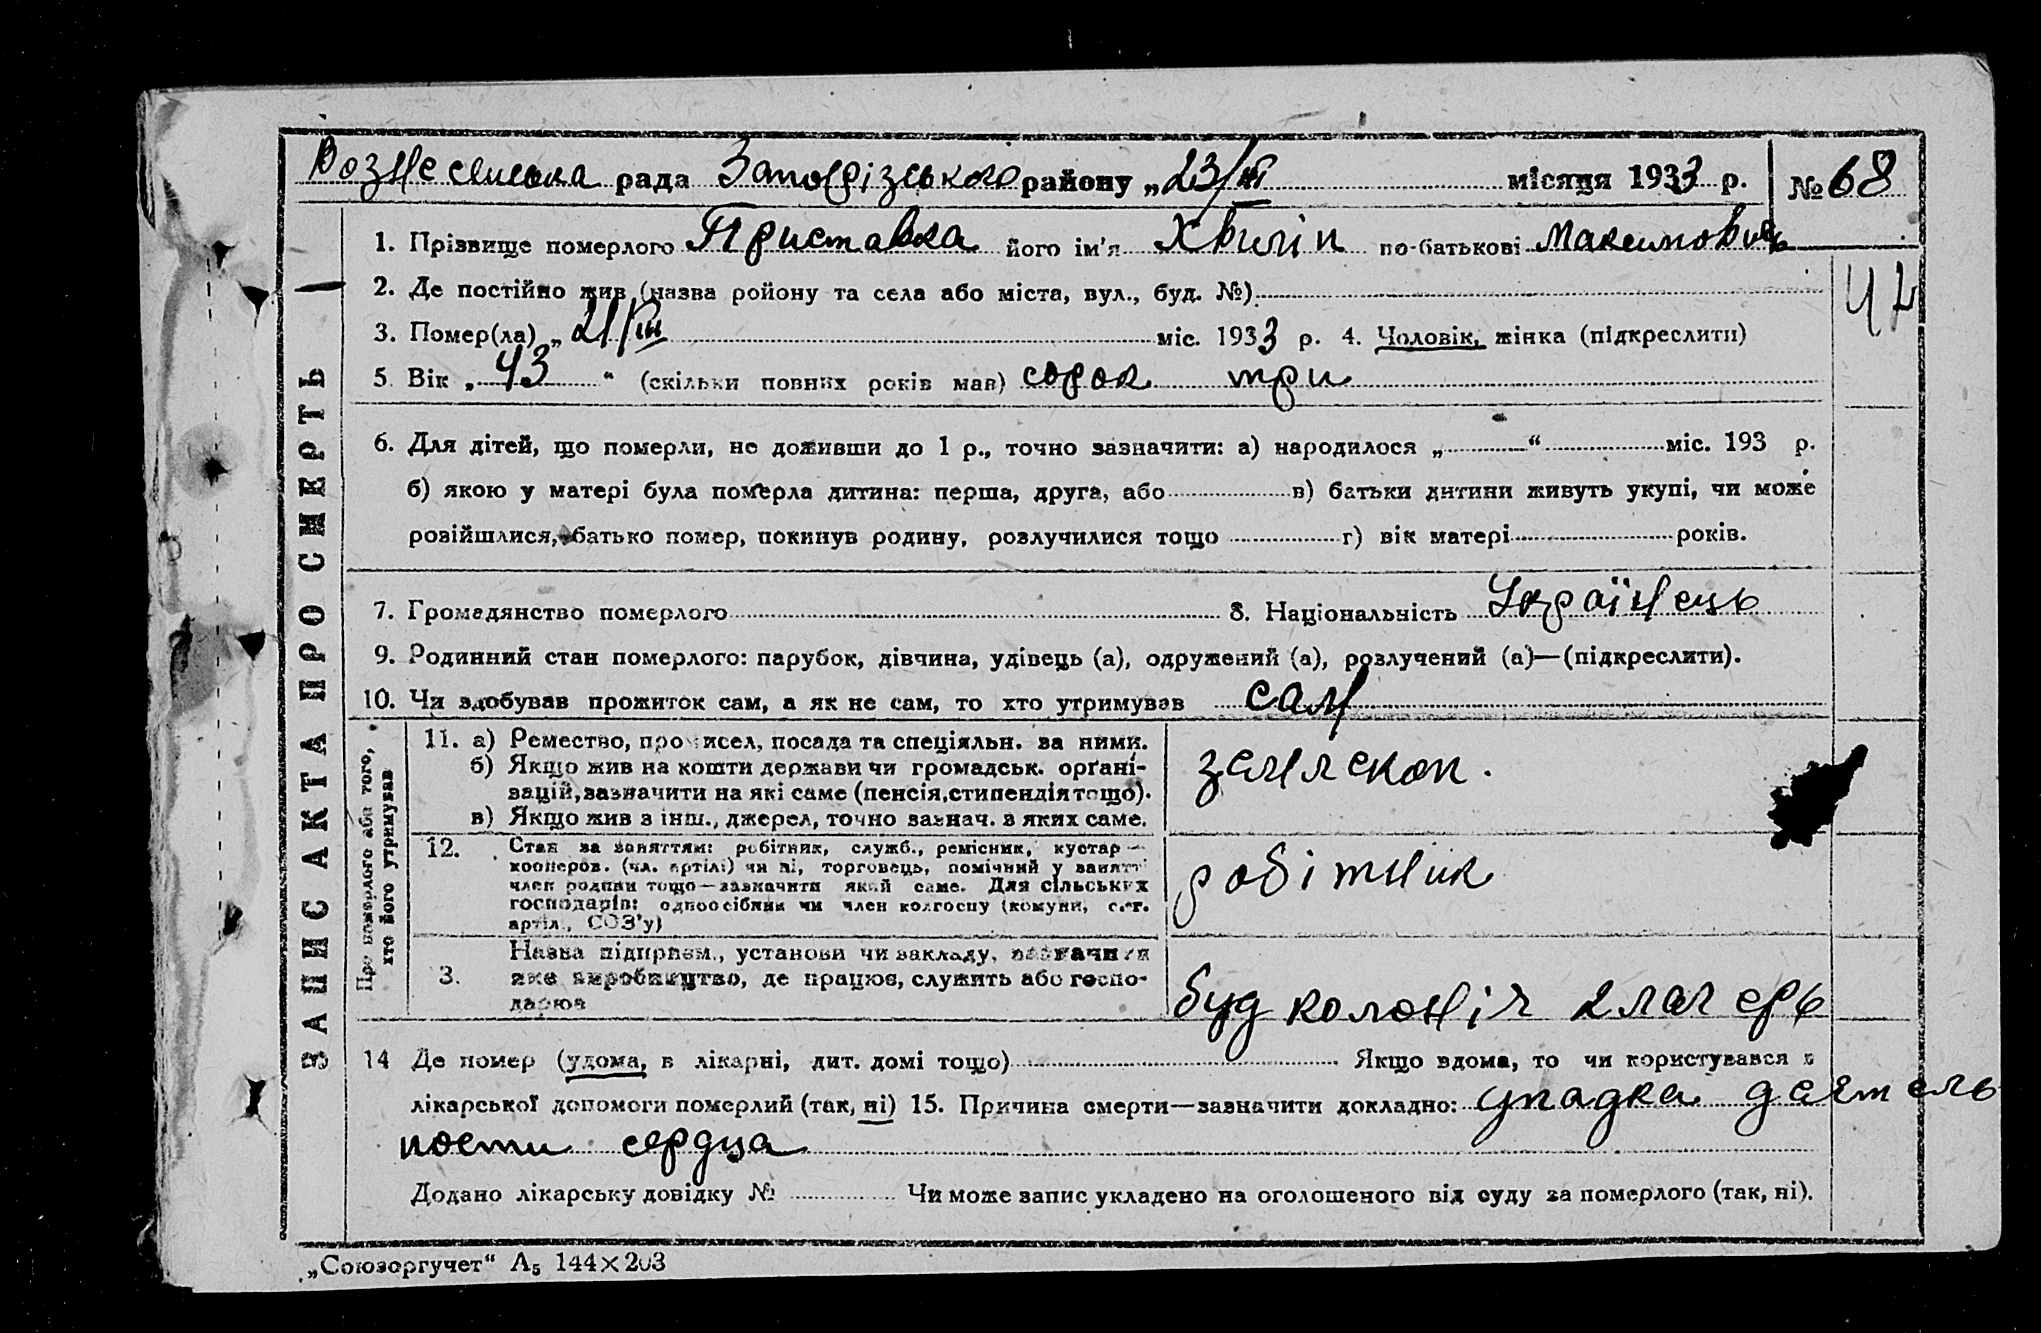 Вознесенська рада Запорізського району „23/III місяця 1933 р. № 68
1. Прізвище померлого Приставка його ім'я Хвилін по-батькові Максимовичь
2. Де постійно жив (назва ройону та села або міста, вул., буд. №)
42
3. Помер(ла) „21/III міс. 1933 р. 4. Чоловік, жінка (підкреслити)
5. Вік „43“ (скільки повних років мав) сорок три
6. Для дітей, що померли, не доживши до 1 р., точно зазначити: а) народилося „ “ міс. 193 р.
б) якою у матері була померла дитина: перша, друга, або в) батьки дитини живуть укупі, чи може
ровійшлися, батько помер, покинув родину, розлучилися тощо г) вік матері років.
7. Громадянство померлого 8. Національність Українець
9. Родинний стан померлого: парубок, дівчина, удівець (а), одружений (а), розлучений (а)—(підкреслити).
10. Чи здобував прожиток сам, а як не сам, то хто утримував сам
ЗАПИС АКТА ПРО СМЕРТЬ
Про померлого або того,
хто його утримував
11. а) Ремество, промисел, посада та спеціяльн. за ними.
б) Якщо жив на кошти держави чи громадськ. орґані-
зацій, зазначити на які саме (пенсія, стипендія тощо).
в) Якщо жив з інш., джерел, точно зазнач. з яких саме.
землекоп.
12. Стан за заняттям: робітник, служб., ремісник, кустар —
кооперов. (чл. артілі) чи ні, торговець, помічний у занятті
член родини тощо—зазначити який саме. Для сільських
господарів: одноосібник чи член колгоспу (комуни, с.-г.
артіл., СОЗ'у)
робітник
3. Назва підприєм., установи чи закладу, зазначити
яке виробництво, де працює, служить або госпо-
дарює
буд колоніч 2 лагерь
14 Де помер (удома, в лікарні, дит. домі тощо) Якщо вдома, то чи користувався з
лікарської допомоги померлий (так, ні) 15. Причина смерти—зазначити докладно: упадка деятель
ности сердца
Додано лікарську довідку № Чи може запис укладено на оголошеного від суду за померлого (так, ні).
„Союзоргучет“ А₅ 144×203